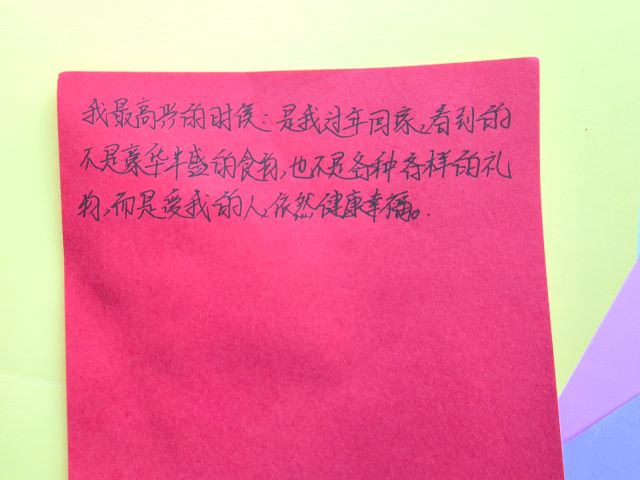 我最高兴的时候：是我过年回家，看到的
不是豪华丰盛的食物，也不是各种各样的礼
物，而是爱我的人，依然健康幸福。